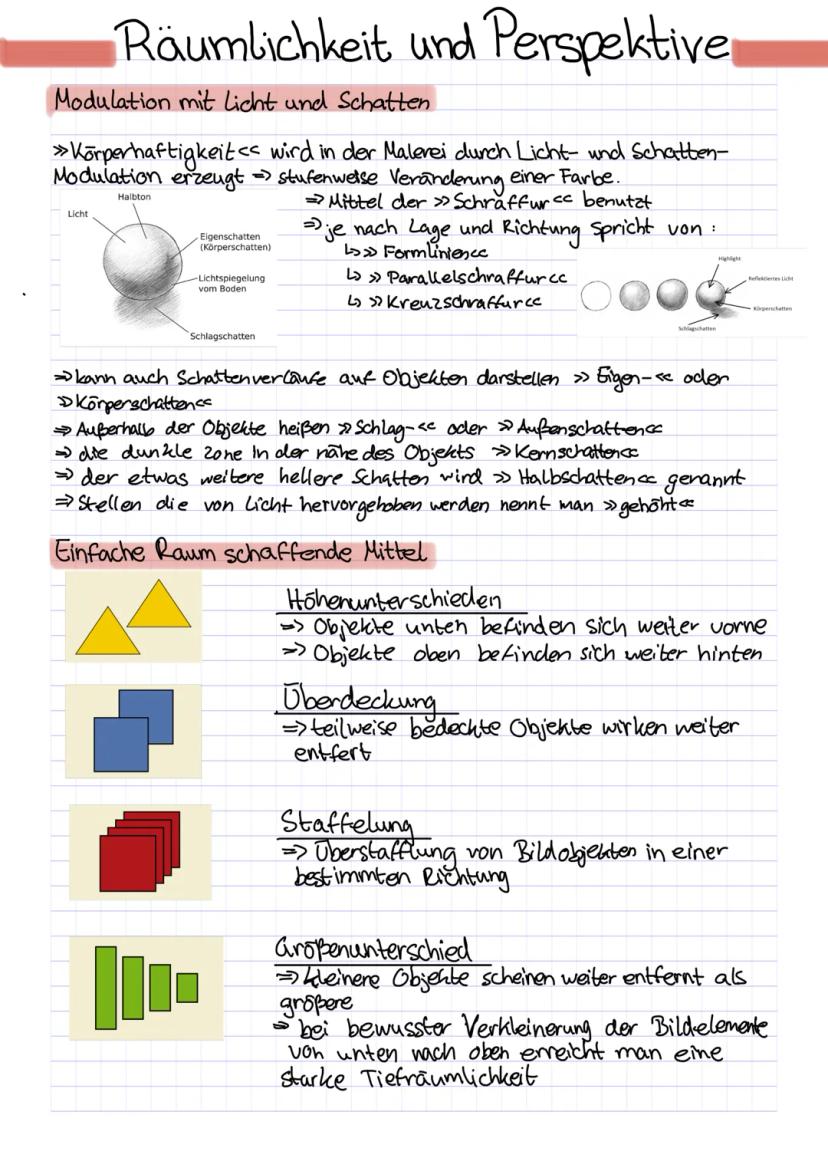 Räumlichkeit und Perspektive
Modulation mit Licht und Schatten
»Körperhaftigkeit<< wird in der Malerei durch Licht- und Schatten-
Modulation erzeugt => stufenweise Veränderung einer Farbe.
=> Mittel der >>Schraffur<< benutzt
=> je nach Lage und Richtung spricht von :
↳>> Formlinien<<
↳ >> Parallelschraffur<<
↳ >> Kreuzschraffur<<
Halbton
Licht
Eigenschatten
(Körperschatten)
Lichtspiegelung
vom Boden
Schlagschatten
Highlight
Reflektiertes Licht
Körperschatten
Schlagschatten
=> kann auch Schattenverläufe auf Objekten darstellen >> Eigen-<< oder
>> Körperschatten<<
=> Außerhalb der Objekte heißen >>Schlag-<< oder >>Außenschatten<<
=> die dunkle zone in der nähe des Objekts >>Kernschatten<<
=> der etwas weitere hellere Schatten wird >> Halbschatten<< genannt
=> Stellen die von Licht hervorgehoben werden nennt man >>gehöht<<
Einfache Raum schaffende Mittel
Höhenunterschieden
=> Objekte unten befinden sich weiter vorne
=> Objekte oben befinden sich weiter hinten
Überdeckung
=> teilweise bedeckte Objekte wirken weiter
entfert
Staffelung
=> Überstafflung von Bildobjekten in einer
bestimmten Richtung
Größenunterschied
=> kleinere Objekte scheinen weiter entfernt als
größere
=> bei bewusster Verkleinerung der Bildelemente
von unten nach oben erreicht man eine
starke Tiefräumlichkeit